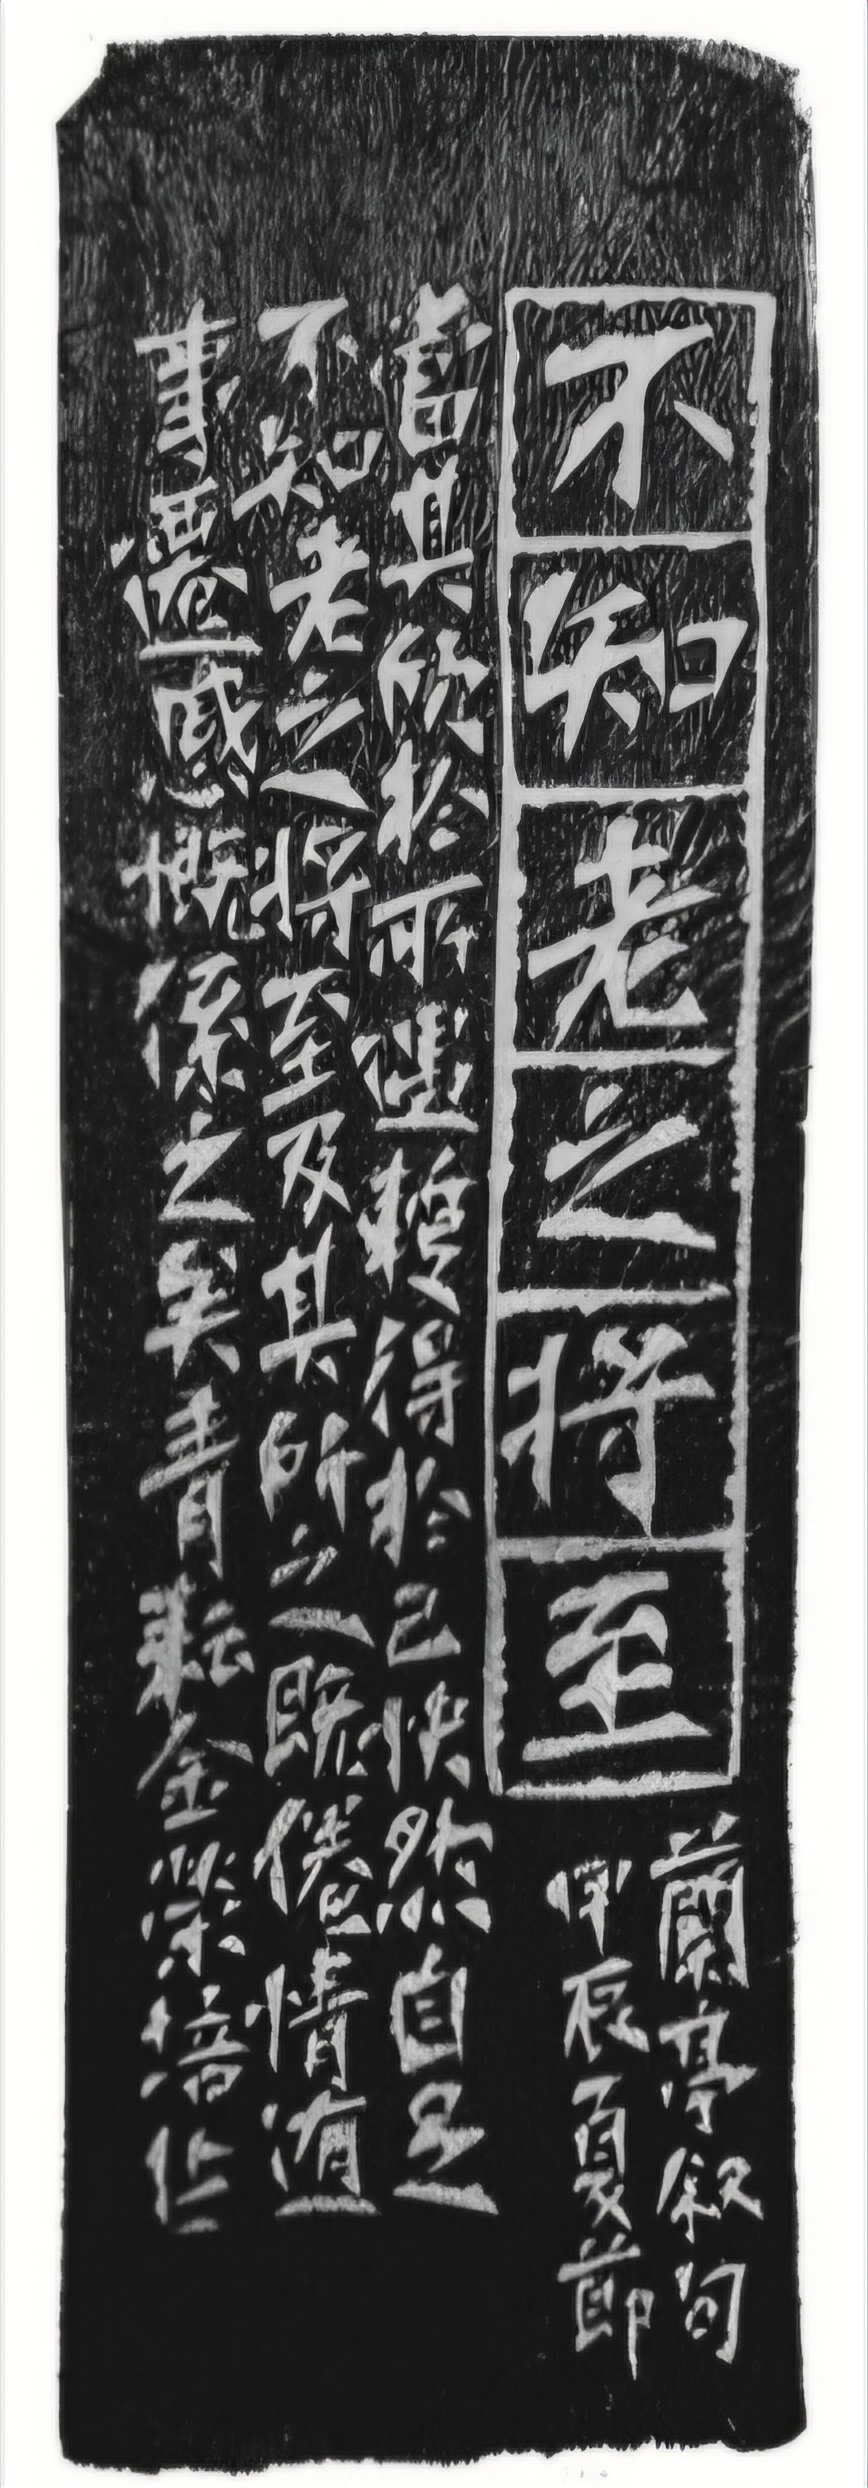 不知老之将至
蘭亭叙句
甲辰夏節
當其欣於所遇暫得於己快然自足
不知老之將至及其所之既倦情随
事遷感慨係之矣青耘金榮培作